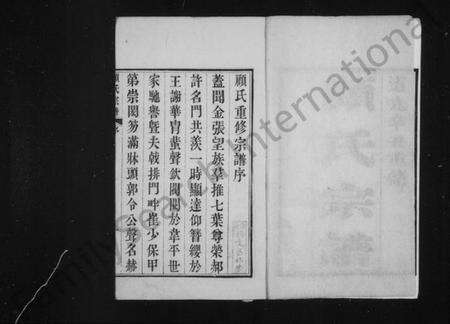 顧氏重修宗譜序
蓋聞金張望族羣推七葉尊榮郝
許名門共羨一時顯達仰簪纓於
王謝華胄蜚聲欽閥閱於韋平世
家馳譽暨夫戟排門畔崔少保甲
第崇閎笏滿牀頭郭令公聲名赫
顧氏宗譜
FamilySearch International